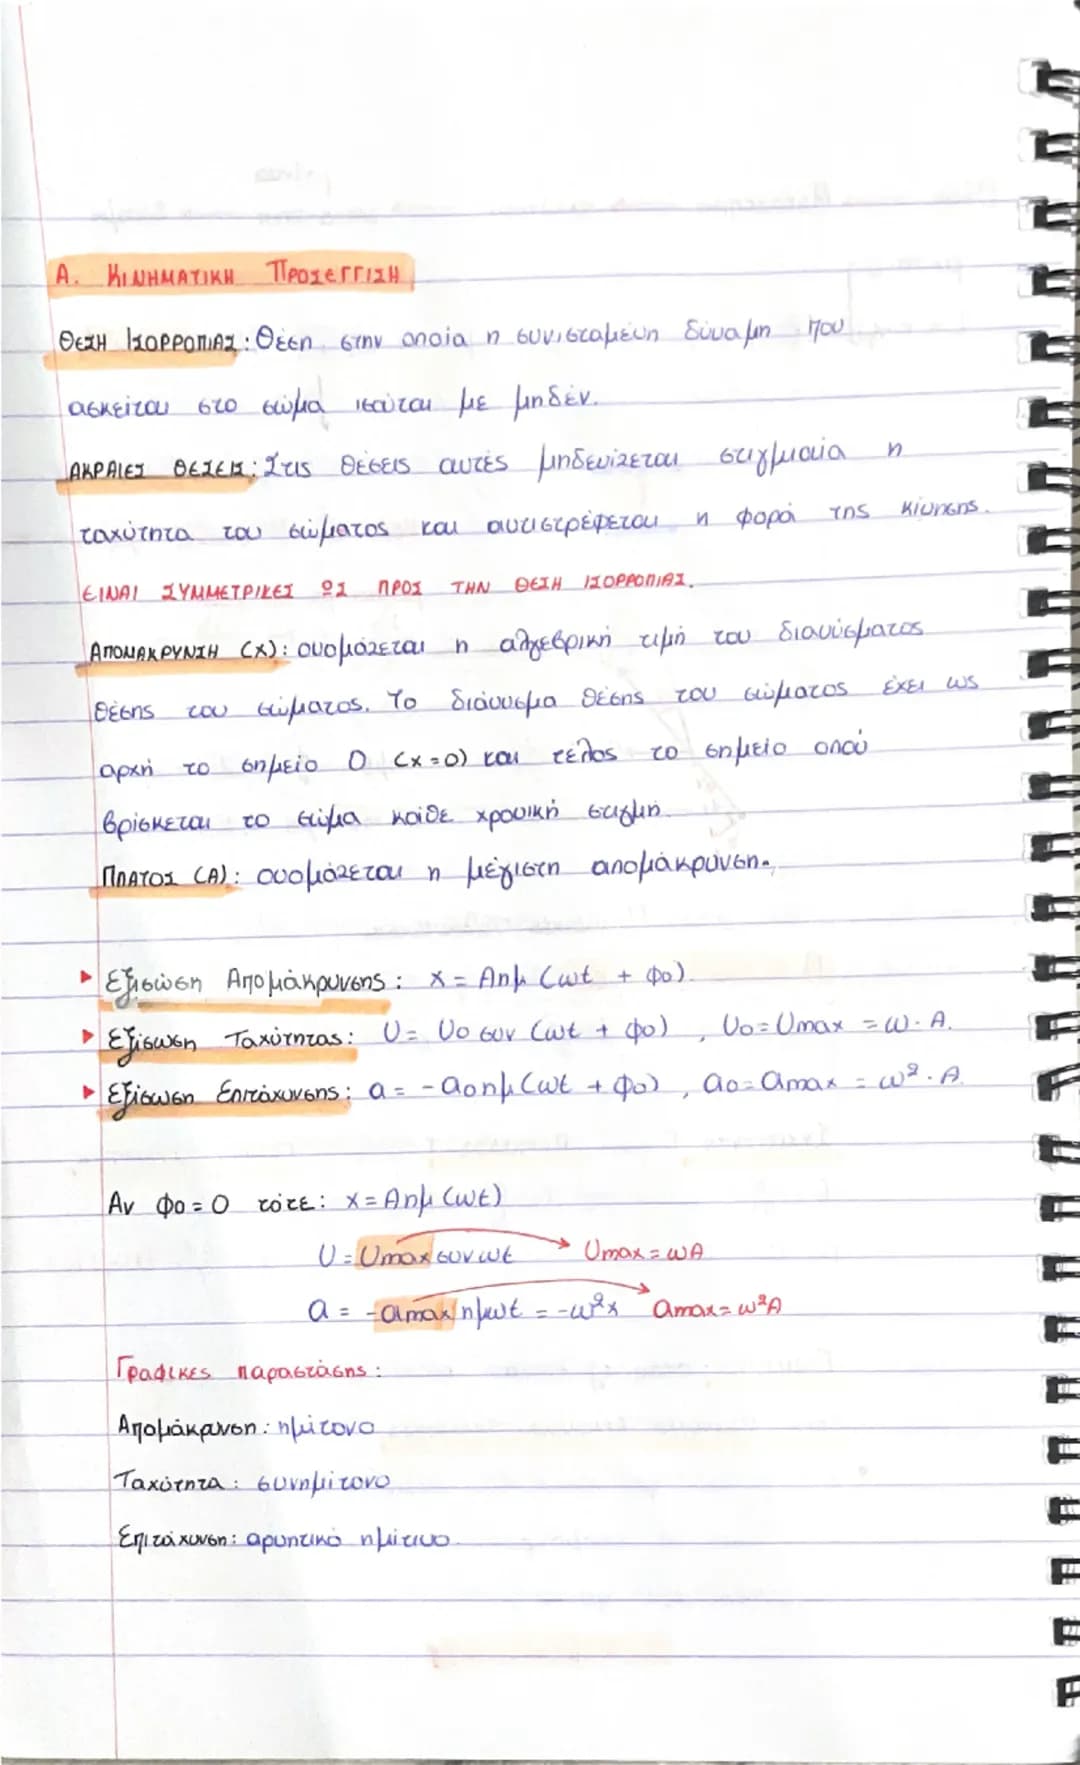 Α. ΚΙΝΗΜΑΤΙΚΗ ΠΡΟΣΕΓΓΙΣΗ
ΘΕΣΗ ΙΣΟΡΡΟΠΙΑΣ: Θέση στην οποία η συνισταμένη δύναμη που
ασκείται στο σώμα ισούται με μηδέν.
ΑΚΡΑΙΕΣ ΘΕΣΕΙΣ: Στις θέσεις αυτές μηδενίζεται στιγμιαία η
ταχύτητα του σώματος και αντιστρέφεται η φορά της κίνησης.
ΕΙΝΑΙ ΣΥΜΜΕΤΡΙΚΕΣ ΩΣ ΠΡΟΣ ΤΗΝ ΘΕΣΗ ΙΣΟΡΡΟΠΙΑΣ.
ΑΠΟΜΑΚΡΥΝΣΗ (x): ονομάζεται η αλγεβρική τιμή του διανύσματος
θέσης του σώματος. Το διάνυσμα θέσης του σώματος έχει ως
αρχή το σημείο Ο (x=0) και τέλος το σημείο οπού
βρίσκεται το σώμα κάθε χρονική στιγμή.
ΠΛΑΤΟΣ (Α): ονομάζεται η μέγιστη απομάκρυνση.
▸ Εξισώση Απομάκρυνσης: x = Aημ (ωt + φο).
▸ Εξίσωση Ταχύτητας: U = Uο συν (ωt + φο), Uο = Umax = ω · A.
▸ Εξίσωση Επιτάχυνσης: a = -aοημ (ωt + φο), aο = amax = ω² · A.
Αν φο = 0 τότε: x = Aημ (ωt)
U = Umax συν ωt → Umax = ωA
a = -amax ημωt = -ω²x amax = ω²A
Γραφικες παραστάσης:
Απομάκρυνση: ημίτονο
Ταχύτητα: συνημίτονο
Επιτάχυνση: αρνητικό ημίτινο.